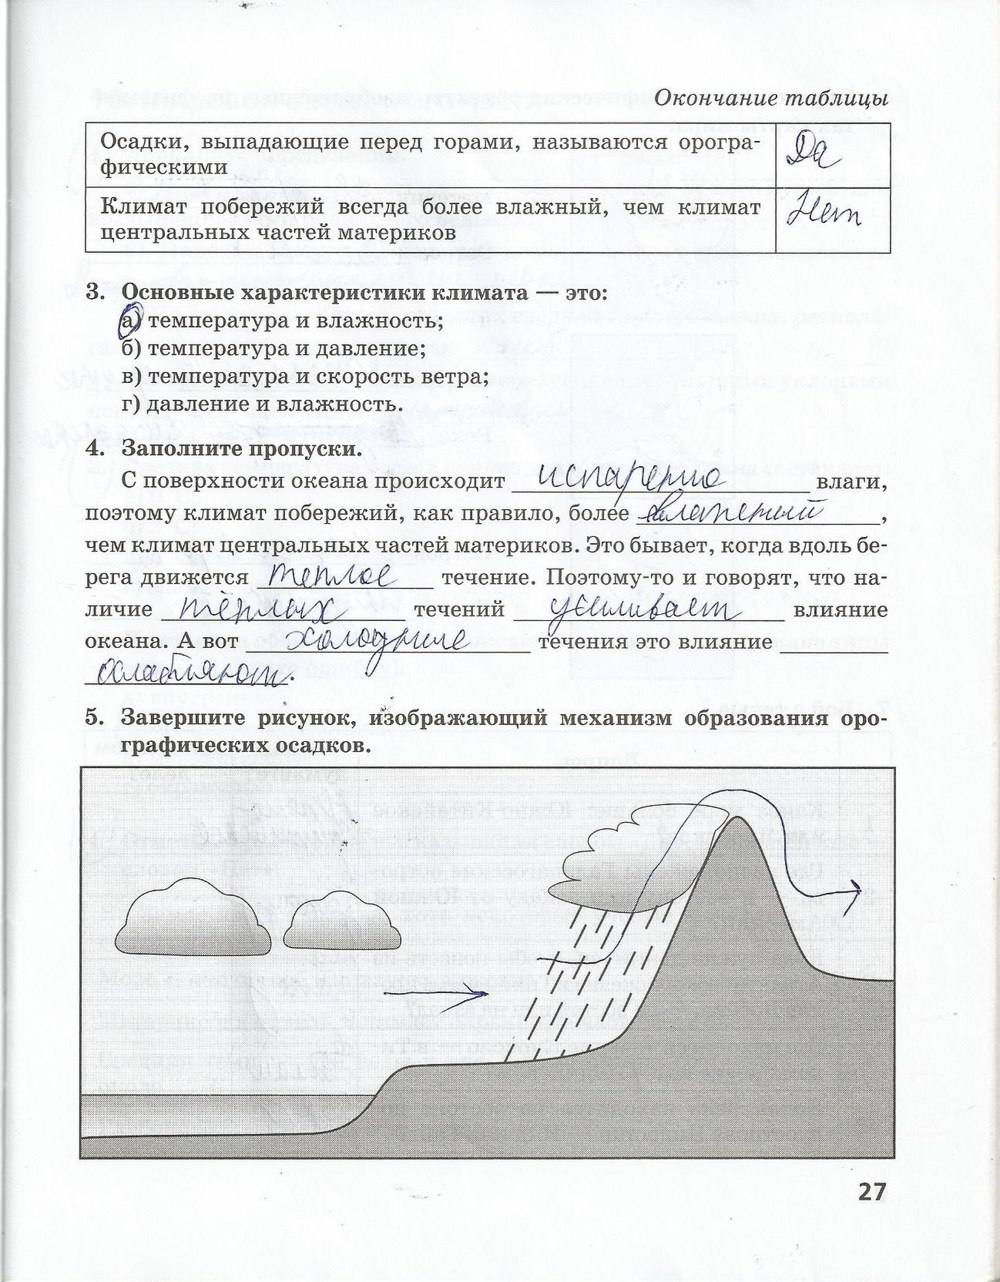 Окончание таблицы
Осадки, выпадающие перед горами, называются орогра-
фическими
Да
Климат побережий всегда более влажный, чем климат
центральных частей материков
Нет
3. Основные характеристики климата — это:
а) температура и влажность;
б) температура и давление;
в) температура и скорость ветра;
г) давление и влажность.
4. Заполните пропуски.
С поверхности океана происходит испарение влаги,
поэтому климат побережий, как правило, более влажный,
чем климат центральных частей материков. Это бывает, когда вдоль бе-
рега движется теплое течение. Поэтому-то и говорят, что на-
личие тёплых течений усиливает влияние
океана. А вот холодные течения это влияние
ослабляют.
5. Завершите рисунок, изображающий механизм образования оро-
графических осадков.
27